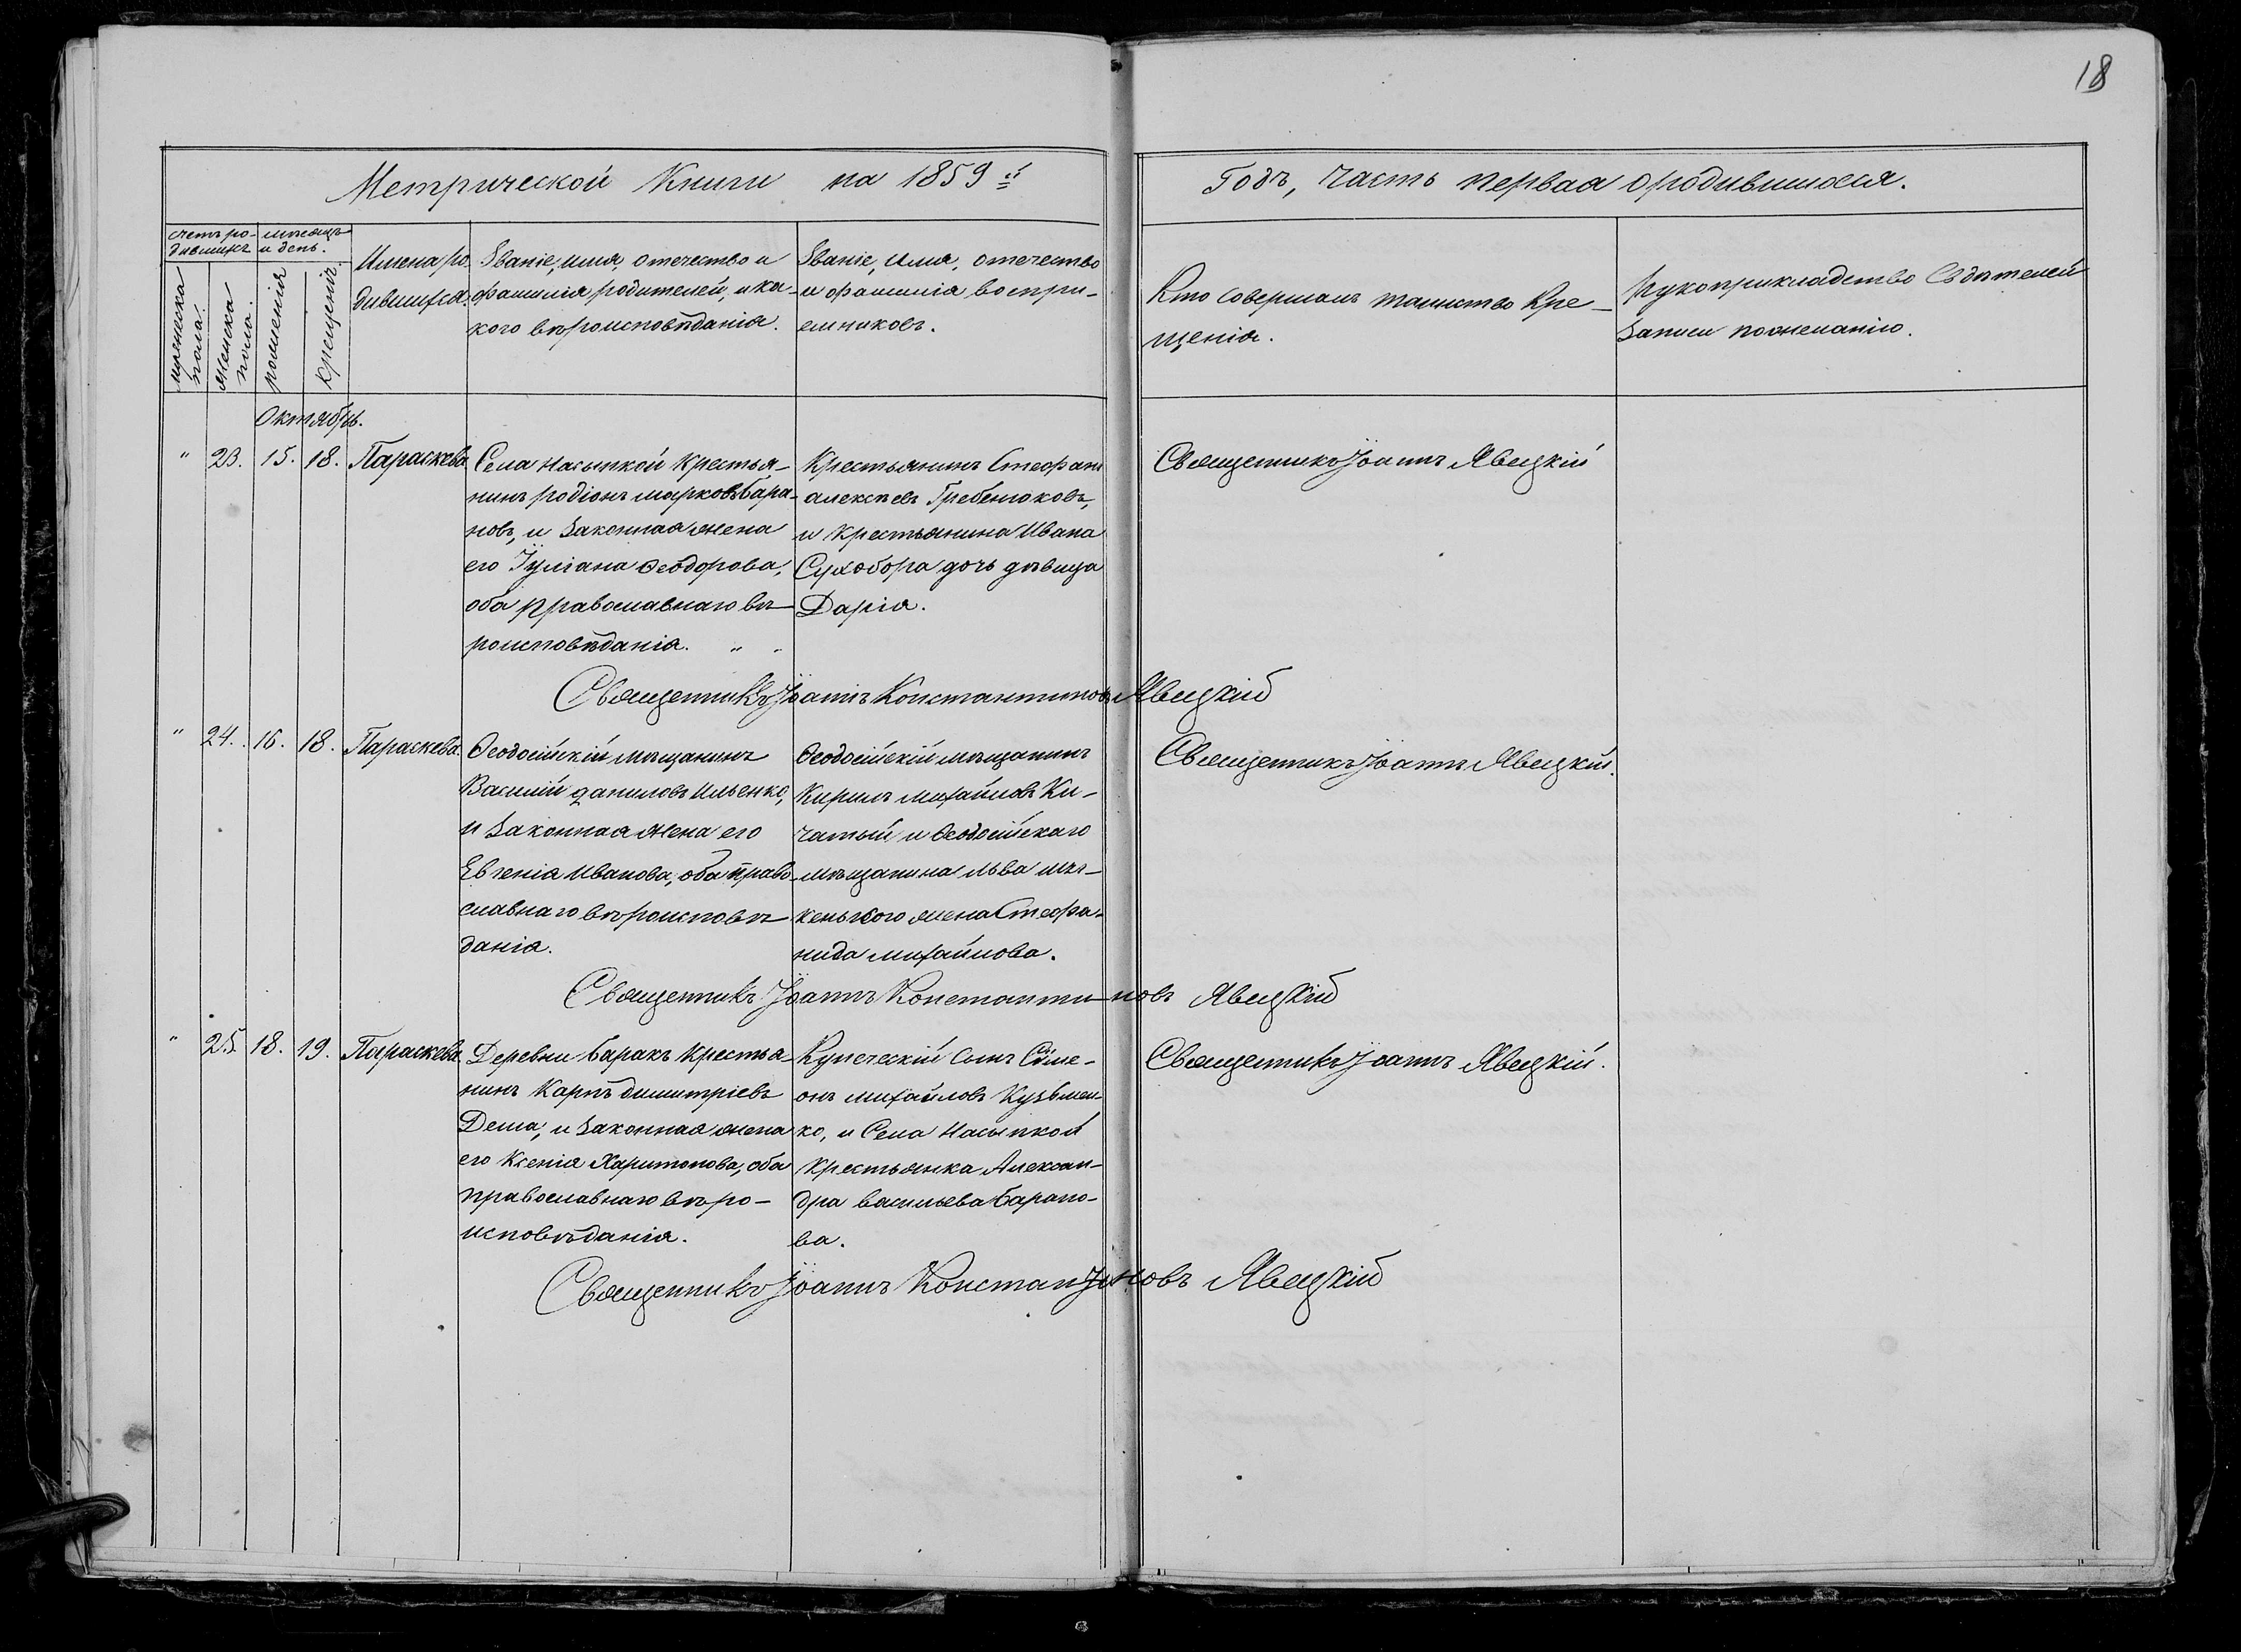 18
Метрической Книги на 1859 й
Годъ, Часть первая ородившихся.
счетъ ро-
дившихъ
мѣсяцъ
и день.
мужеска
пола.
Женска
пола.
рожденія
крещенія.
Имена ро
дившихся.
Званіе, имя, отечество и
фамилія родителей, и ка-
кого вѣроисповѣданія.
Званіе, имя, отечество
и фамилія воспри-
емниковъ.
Кто совершалъ таинство Кре-
щенія.
Рукоприкладство Свдѣтелей
записи пожеланію.
Октябрь.
" 23. 15. 18. Параскева
Села Насыпкой Крестья-
нинъ родіонъ марковъ Бара-
новъ, и законная жена
его Іуліана Феодорова,
оба православнаго вѣ-
роисповѣданія. " "
Крестьянинъ Стефанъ
алексѣевъ Гребенюковъ,
и крестьянина Ивана
Сухобора дочь дѣвица
Дарія.
Священникъ Іоаннъ Явецкій
Священникъ Іоаннъ Константиновъ Явецкій
" 24. 16. 18. Параскева.
Феодосійскій мѣщанинъ
Василій даниловъ Ильенко,
и Законная Жена его
Евгенія Иванова, оба право-
славнаго вѣроисповѣ-
данія.
Феодосійскій мѣщанинъ
Кирилъ михайловъ Ки-
чатый и Феодосійскаго
мѣщанина Льва
жена Стефа-
нида михайлова.
Священникъ Іоаннъ Явецкій.
Священникъ Іоаннъ Константиновъ Явецкій
" 25. 18. 19. Параскева.
Деревни Баракъ крестья-
нинъ Карпъ димитріевъ
Дема, и законная жена
его Ксенія Харитонова, оба
православнаго вѣро-
исповѣданія.
Купеческій сынъ Симе-
онъ михайловъ Кузьмен-
ко, и Села Насыпкой
крестьянка Алексан-
дра васильева Барано-
ва.
Священникъ Іоаннъ Явецкій.
Священникъ Іоаннъ Константиновъ Явецкій